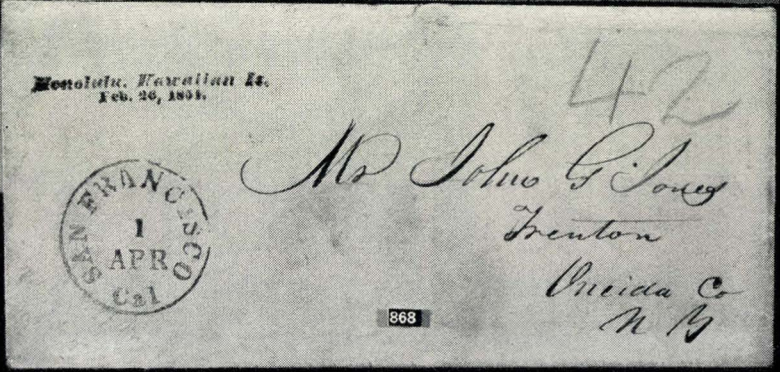 Honolulu. Hawaiian Is.
Feb. 26,
42
SAN FRANCISCO
1
APR
Cal
Mr John G Jones
Trenton
Oneida Co
N Y
868